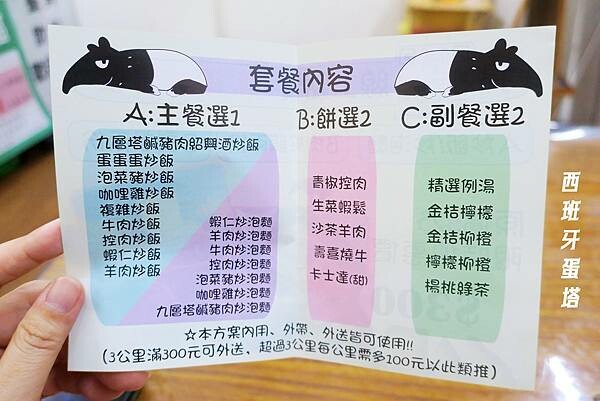 套餐內容
A:主餐選1
九層塔鹹豬肉紹興酒炒飯
蛋蛋蛋炒飯
泡菜豬炒飯
咖哩雞炒飯
複雜炒飯
牛肉炒飯
控肉炒飯
蝦仁炒飯
羊肉炒飯
蝦仁炒泡麵
羊肉炒泡麵
牛肉炒泡麵
控肉炒泡麵
泡菜豬炒泡麵
咖哩雞炒泡麵
九層塔鹹豬肉炒泡麵
B:餅選2
青椒控肉
生菜蝦鬆
沙茶羊肉
壽喜燒牛
卡士達(甜)
C:副餐選2
精選例湯
金桔檸檬
金桔柳橙
檸檬柳橙
楊桃綠茶
☆本方案內用、外帶、外送皆可使用!!
(3公里滿300元可外送，超過3公里每公里需多100元以此類推)
西班牙蛋塔